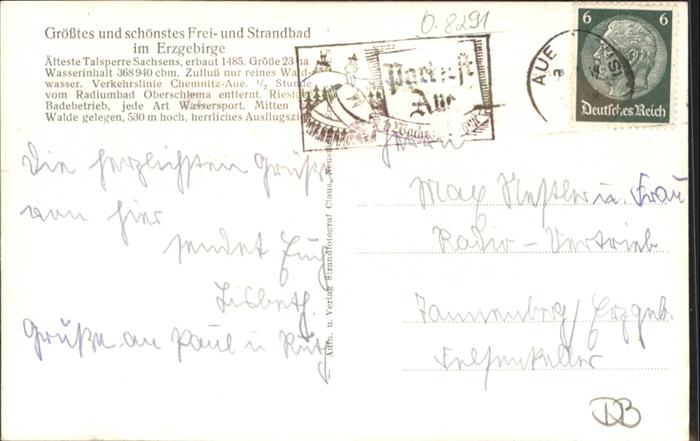 O.8291
Größtes und schönstes Frei- und Strandbad
im Erzgebirge
Älteste Talsperre Sachsens, erbaut 1485. Größe 23 ha
Wasserinhalt 368 940 cbm. Zufluß nur reines Wald-
wasser. Verkehrslinie Chemnitz-Aue. ½ Stunde
vom Radiumbad Oberschlema entfernt. Riesiger
Badebetrieb, jede Art Wassersport. Mitten im
Walde gelegen, 530 m hoch, herrliches Ausflugsziel
Parkfest
Aue
AUE
6 6
Deutsches Reich
Die herzlichsten Grüße
von hier
sendet Euch
Lisbeth.
Grüße an Paul u Ruth
Aufn. u. Verlag Strandfotograf Claus, Neus
Herrn
Max Neßler u. Frau
Radio-Vertrieb
Tannenberg/Erzgeb.
Felsenkeller
DB